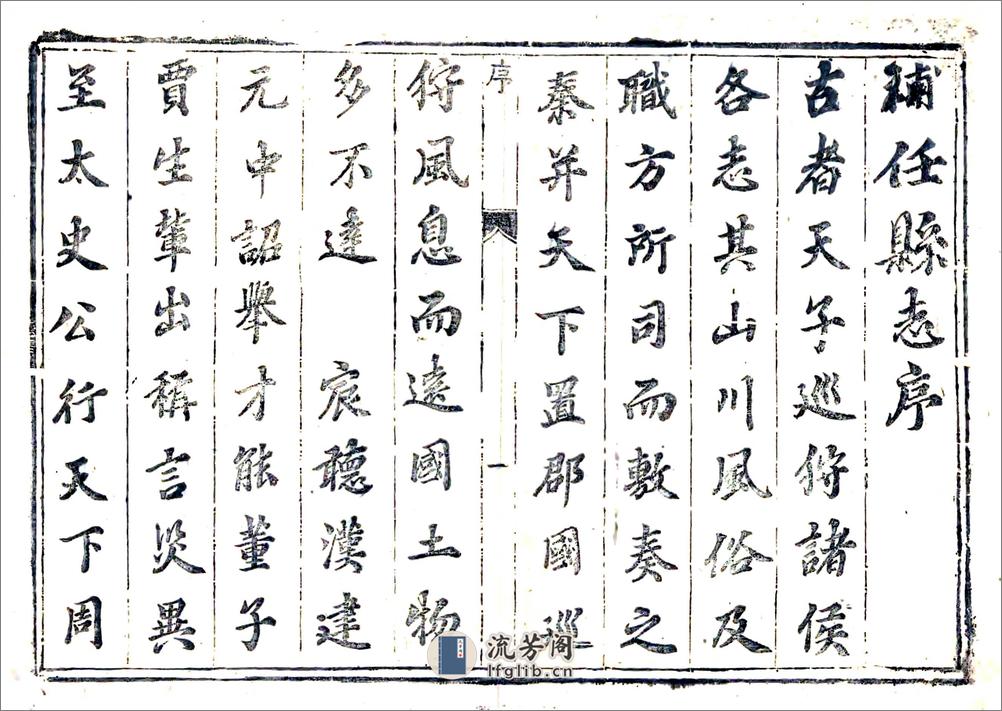 補任縣志序
古者天子巡狩諸侯
各志其山川風俗及
職方所司而敷奏之
秦并天下置郡國巡
序
一
狩風息而遠國土物
多不達 宸聽漢建
元中詔舉才能董子
賈生輩出稱言災異
至太史公行天下周
流芳阁
lfglib.cn